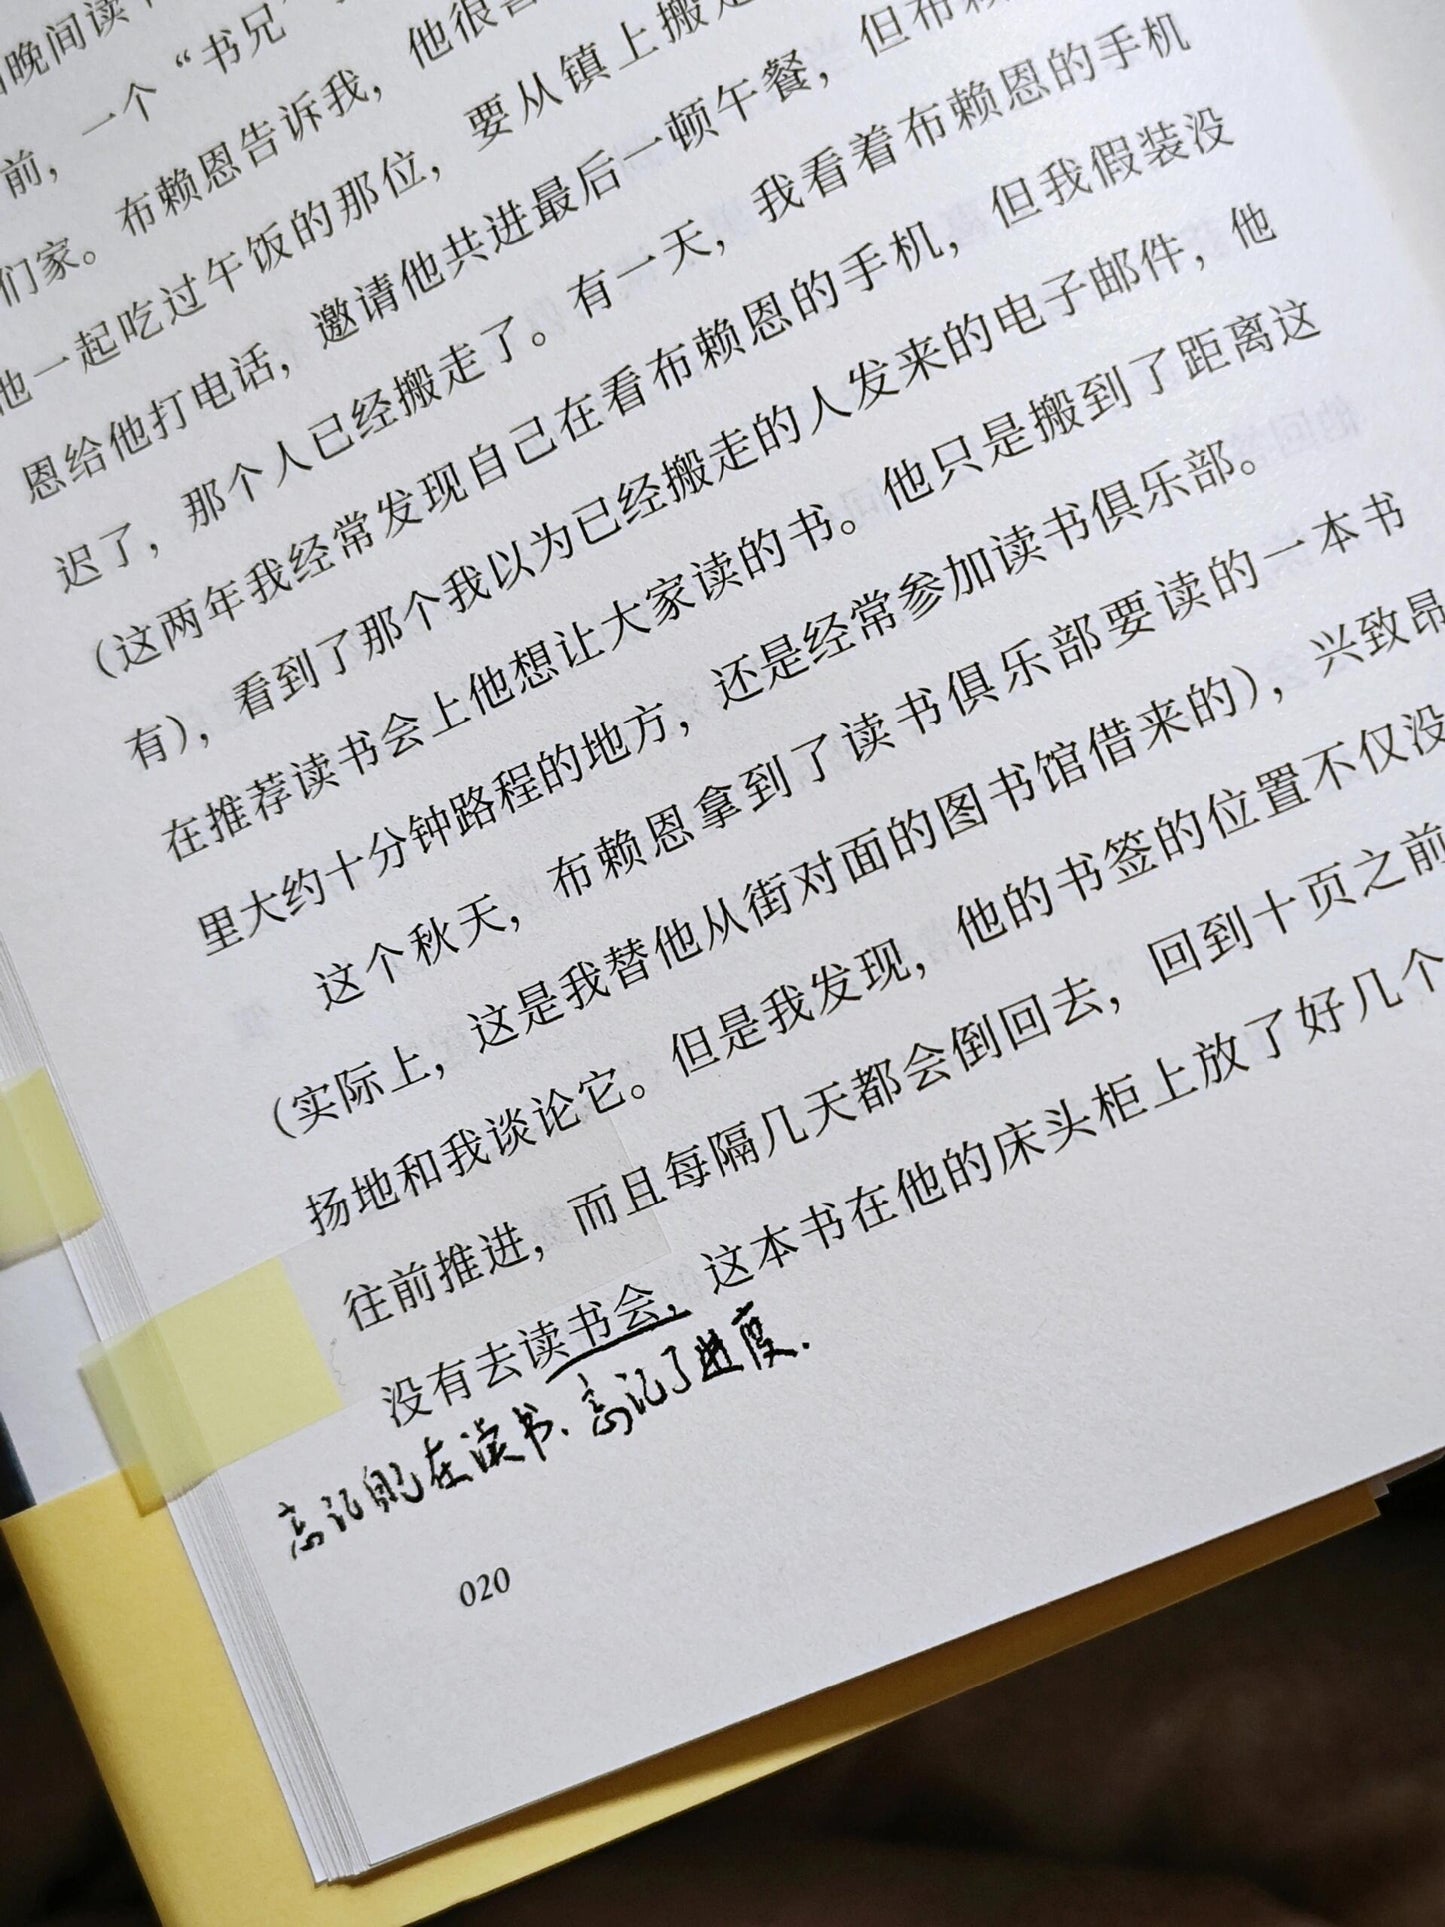 晚间读
前，一个“书兄”
们家。布赖恩告诉我，他很喜
他一起吃过午饭的那位，要从镇上搬走
恩给他打电话，邀请他共进最后一顿午餐，但布赖
迟了，那个人已经搬走了。有一天，我看着布赖恩的手机
（这两年我经常发现自己在看布赖恩的手机，但我假装没
有），看到了那个我以为已经搬走的人发来的电子邮件，他
在推荐读书会上他想让大家读的书。他只是搬到了距离这
里大约十分钟路程的地方，还是经常参加读书俱乐部。
这个秋天，布赖恩拿到了读书俱乐部要读的一本书
（实际上，这是我替他从街对面的图书馆借来的），兴致昂
扬地和我谈论它。但是我发现，他的书签的位置不仅没
往前推进，而且每隔几天都会倒回去，回到十页之前
没有去读书会，这本书在他的床头柜上放了好几个
忘记自己在读书、忘记了进度.
020